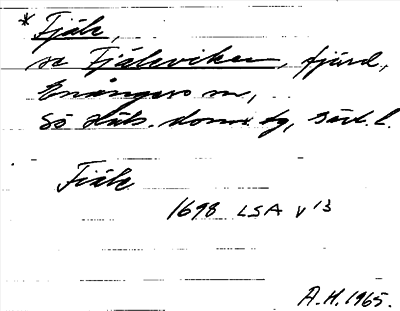 *Fjäle,
se Fjäleviken, fjärd,
Enångers sn,
Sö Häls. doms tg, Gävl. l.
Fiäle
1698 LSA V 13
A.H. 1965.